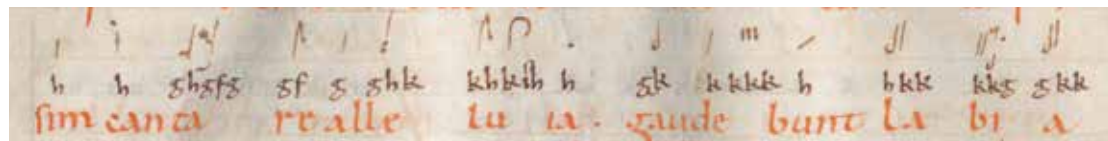 h h ghgfg gf g ghk khkih h gk k kkkk h hkk kkg gkk
sim can ta re alle lu ia . gaude bunt La bi a